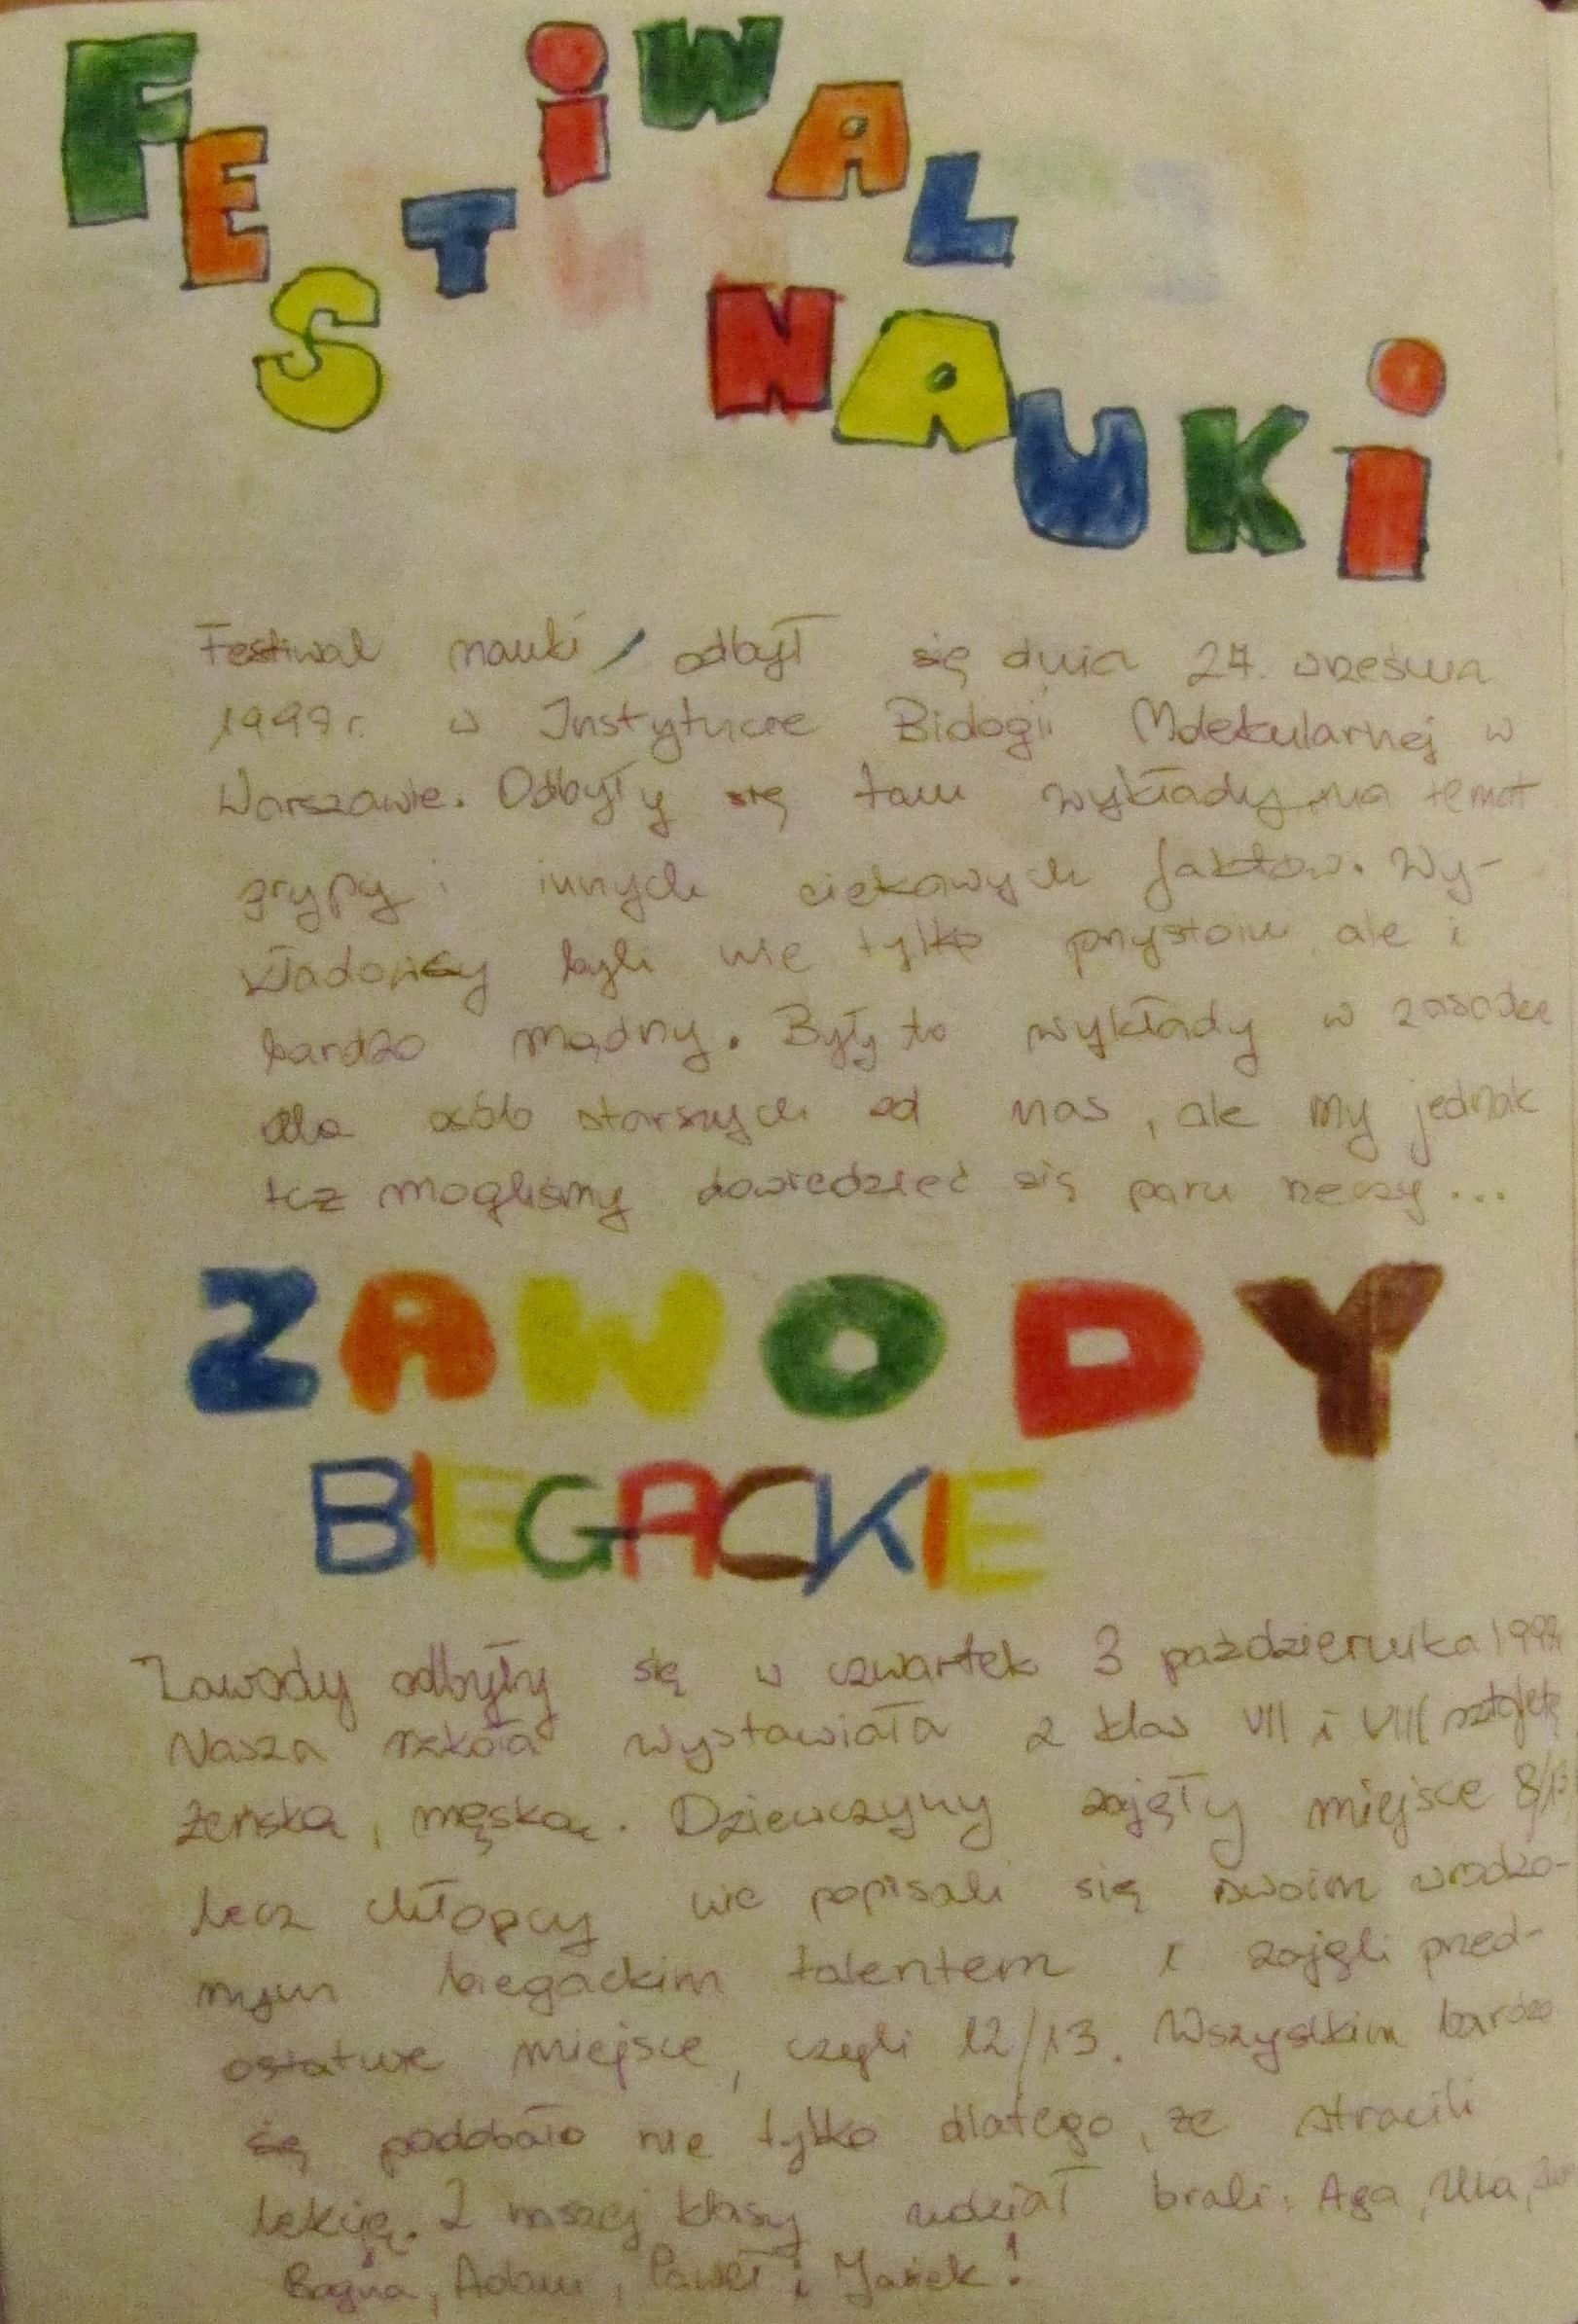 FESTiWAL
NAUKi
Festiwal nauki odbył się dnia 27. września
1997r. w Instytucie Biologii Molekularnej w
Warszawie. Odbyły się tam wykłady na temat
grypy i innych ciekawych faktów. Wy-
kładowcy byli nie tylko przystojni ale i
bardzo mądrzy. Były to wykłady w zasadzie
dla osób starszych od nas, ale my jednak
też mogliśmy dowiedzieć się paru rzeczy...
ZAWODY
BIEGACKIE
Zawody odbyły się w czwartek 3 października
Nasza szkoła wystawiała z klas VII i VIII sztafetę
żeńską, męską. Dziewczyny zajęły miejsce
lecz chłopcy nie popisali się swoim wrodzo-
nym biegackim talentem i zajęli przed-
ostatnie miejsce, czyli 12/13. Wszystkim bardzo
się podobało nie tylko dlatego, że stracili
lekcję. Z naszej klasy udział brali: Aga, Ula,
Bogna, Adam, Paweł i Janek!